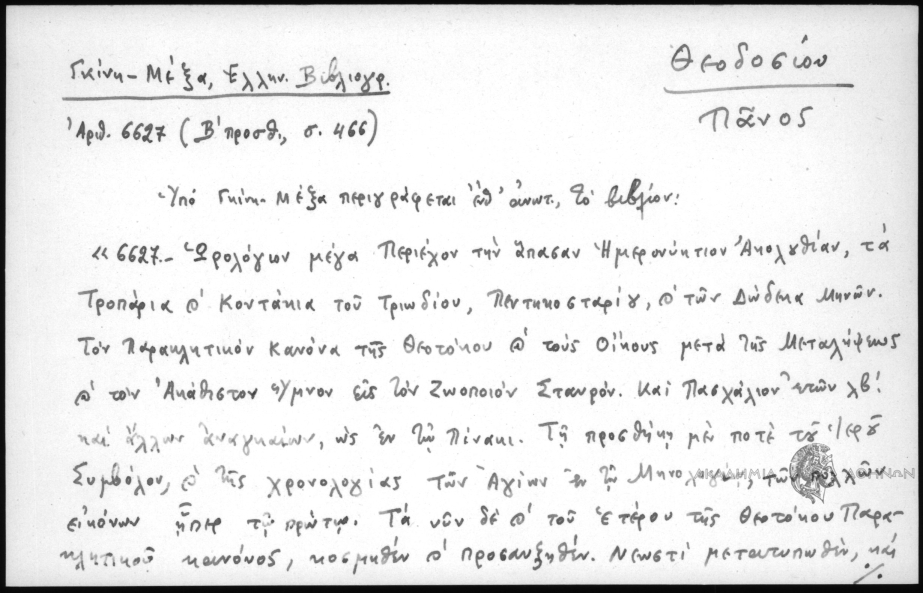 Γκίνη-Μέξα, Ἑλλην. Βιβλιογρ.
Θεοδοσίου
Πᾶνος
Ἀριθ. 6627 (Β' προσθ., σ. 466)
Ὑπό Γκίνη-Μέξα περιγράφεται ἐνθ' ἀνωτ., τό βιβλίον:
« 6627.- Ὡρολόγιον μέγα Περιέχον τήν ἅπασαν Ἡμερονύκτιον Ἀκολυθίαν, τά
Τροπάρια ϗ Κοντάκια τοῦ Τριωδίου, Πεντηκοσταρίυ, ϗ τῶν Δώδεκα Μηνῶν.
Τόν Παρακλητικόν Κανόνα τῆς Θεοτόκου ϗ τούς Οἴκους μετά τῆς Μεταλήψεως
ϗ τόν Ἀκάθιστον Ὕμνον εἰς τόν Ζωοποιόν Σταυρόν. Καί Πασχάλιον ἐτῶν λβ'.
καί ἄλλων ἀναγκαίων, ὡς ἐν τῷ Πίνακι. Τῇ προσθήκῃ μέν ποτέ τοῦ Ἱερῦ
Συμβόλου, ϗ τῆς χρονολογίας τῶν Ἁγίων ἐν τῷ Μηνολογίῳ, τῶν πολλῶν
εἰκόνων ᾗπερ τῷ πρώτῳ. Τά νῦν δέ ϗ τοῦ ἑτέρου τῆς Θεοτόκου Παρα-
κλητικοῦ κανόνος, κοσμηθέν ϗ προσαυξηθέν. Νεωστί μετατυπωθέν, καί
./.
ΑΚΑΔΗΜΙΑ ΑΘΗΝΩΝ